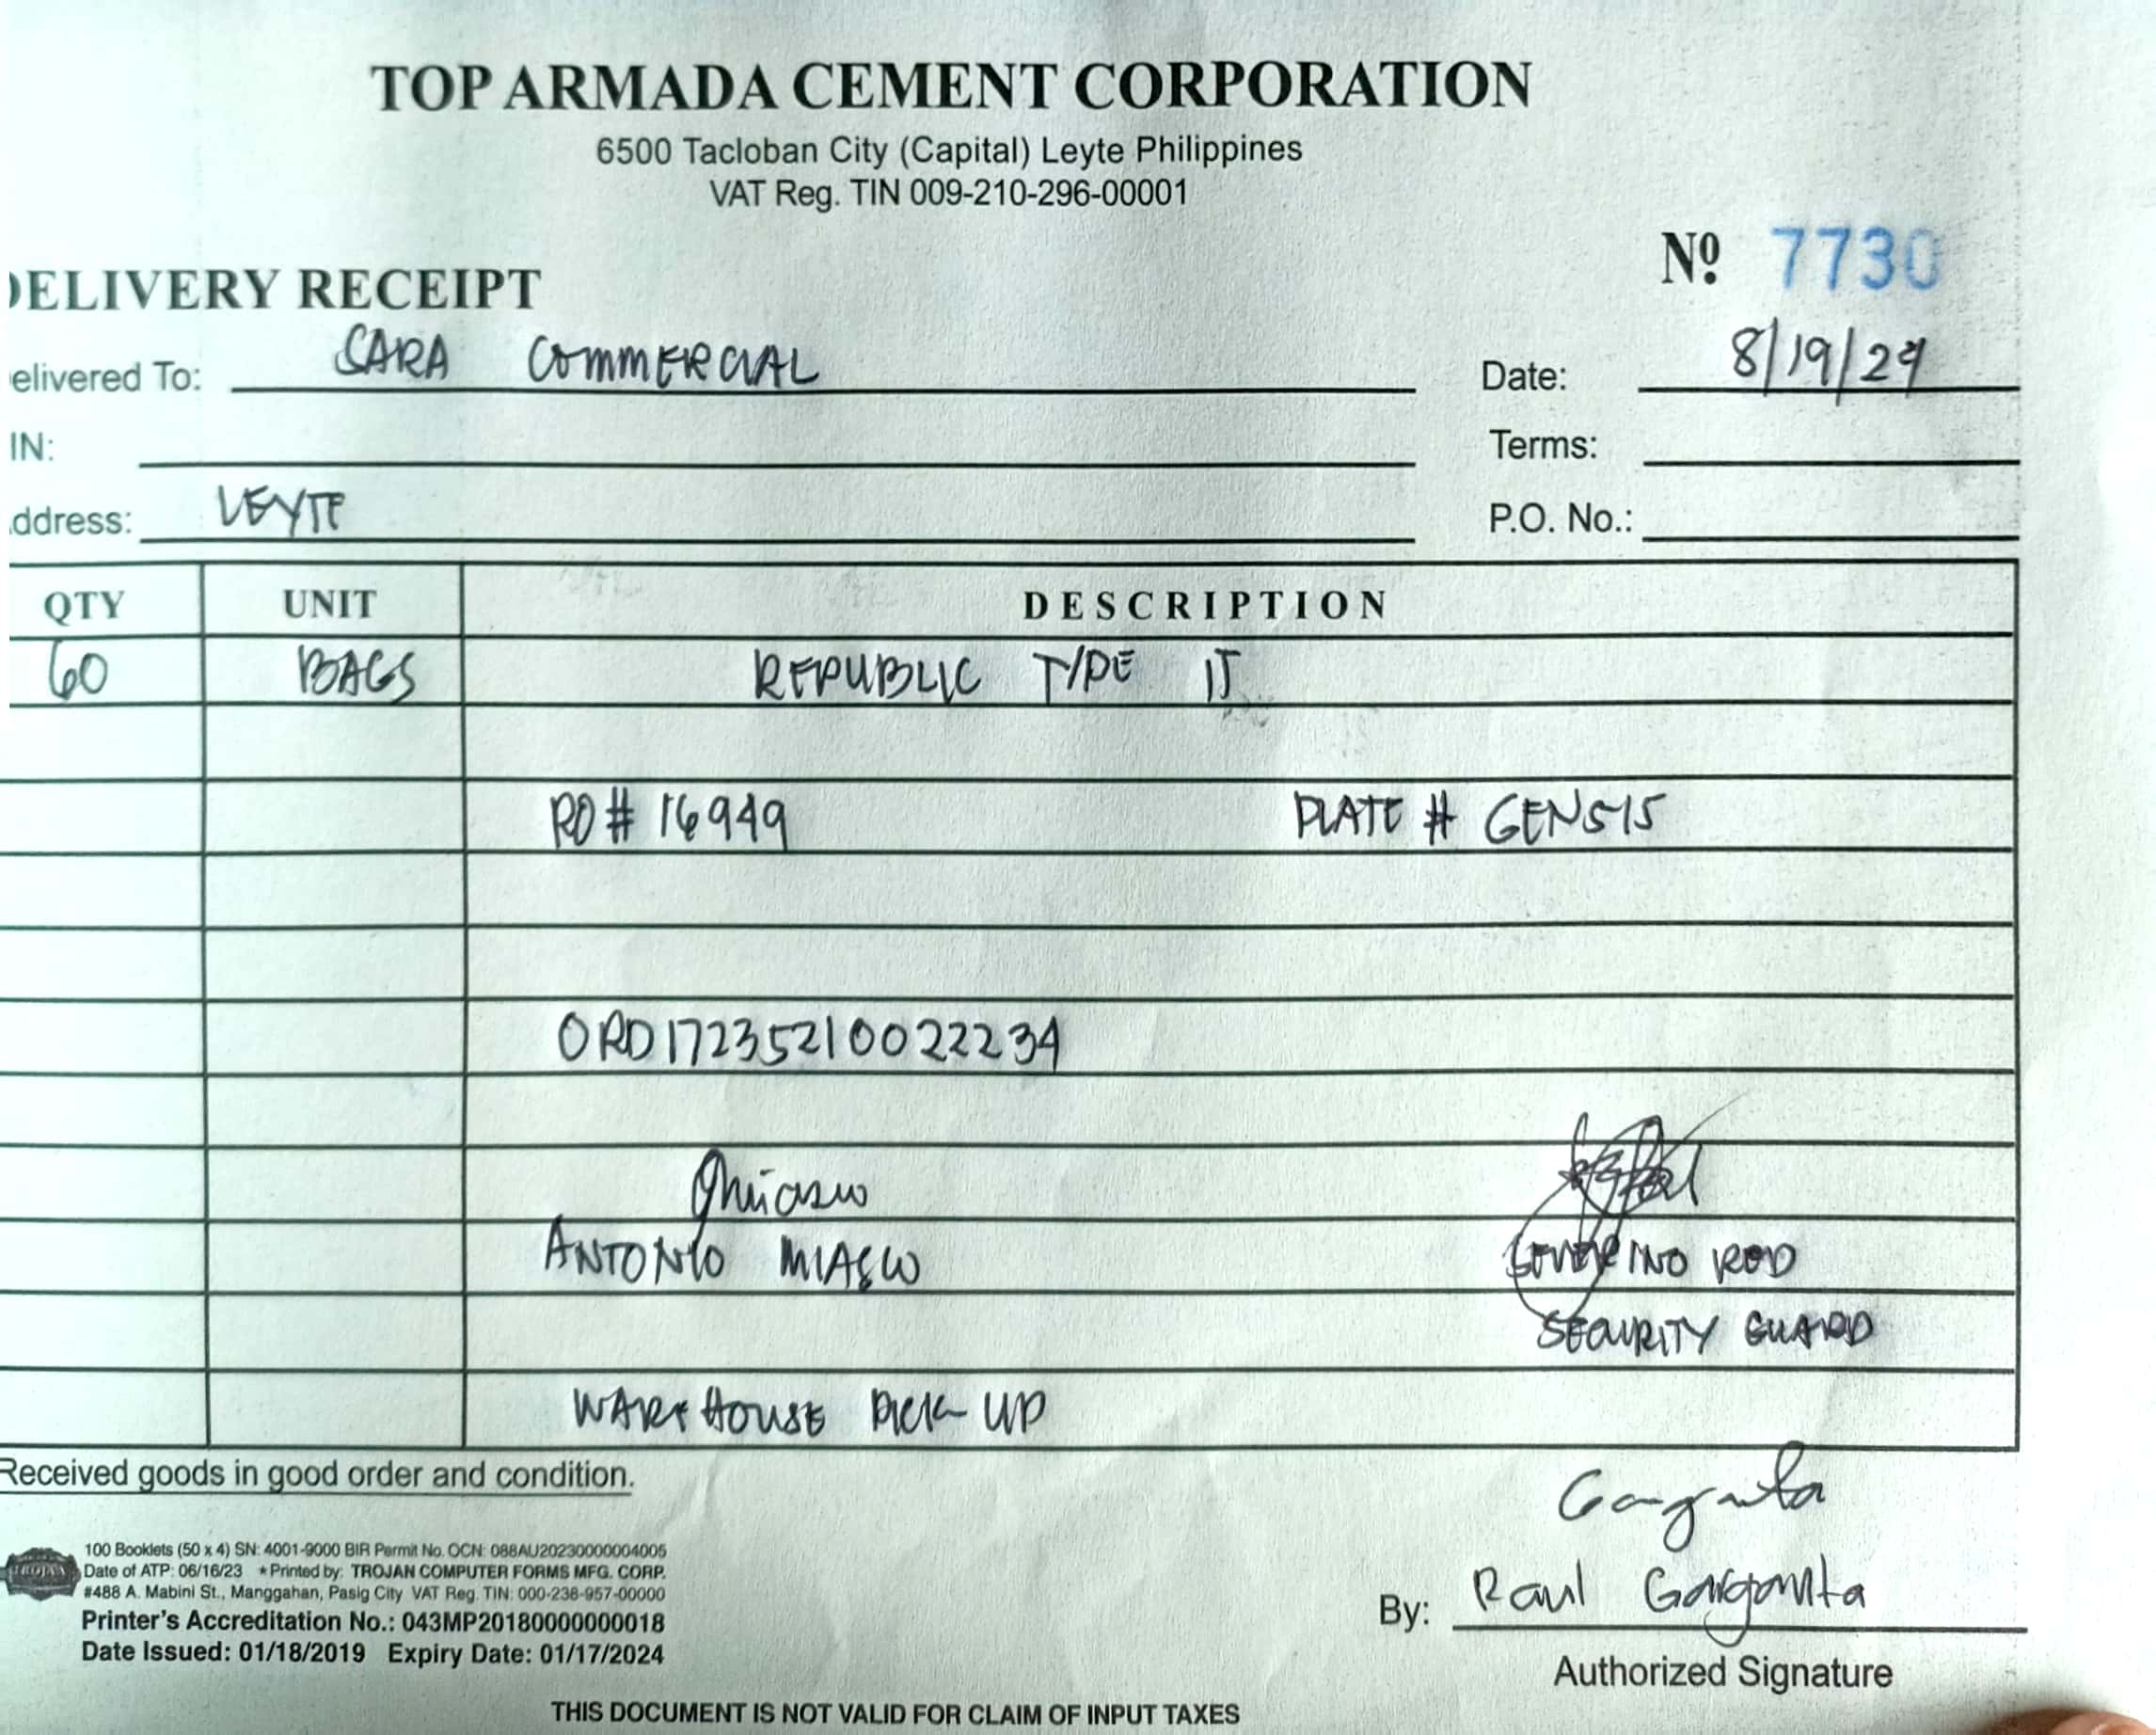 TOP ARMADA CEMENT CORPORATION
6500 Tacloban City (Capital) Leyte Philippines
VAT Reg. TIN 009-210-296-00001
Nº 7730
DELIVERY RECEIPT
elivered To: SARA COMMERCIAL Date: 8/19/24
IN: Terms:
ddress: LEYTE P.O. No.:
QTY UNIT DESCRIPTION
60 BAGS REPUBLIC TYPE IT
RO# 16949 PLATE # GEN515
ORD17235210022234
ANTONIO MIASCO ROD
SECURITY GUARD
WAREHOUSE PICK-UP
Received goods in good order and condition.
TROJAN
100 Booklets (50 x 4) SN: 4001-9000 BIR Permit No. OCN: 088AU20230000004005
Date of ATP: 06/16/23 *Printed by: TROJAN COMPUTER FORMS MFG. CORP.
#488 A. Mabini St., Manggahan, Pasig City VAT Reg. TIN: 000-238-957-00000
Printer's Accreditation No.: 043MP20180000000018
Date Issued: 01/18/2019 Expiry Date: 01/17/2024
By: Raul Garganta
Authorized Signature
THIS DOCUMENT IS NOT VALID FOR CLAIM OF INPUT TAXES